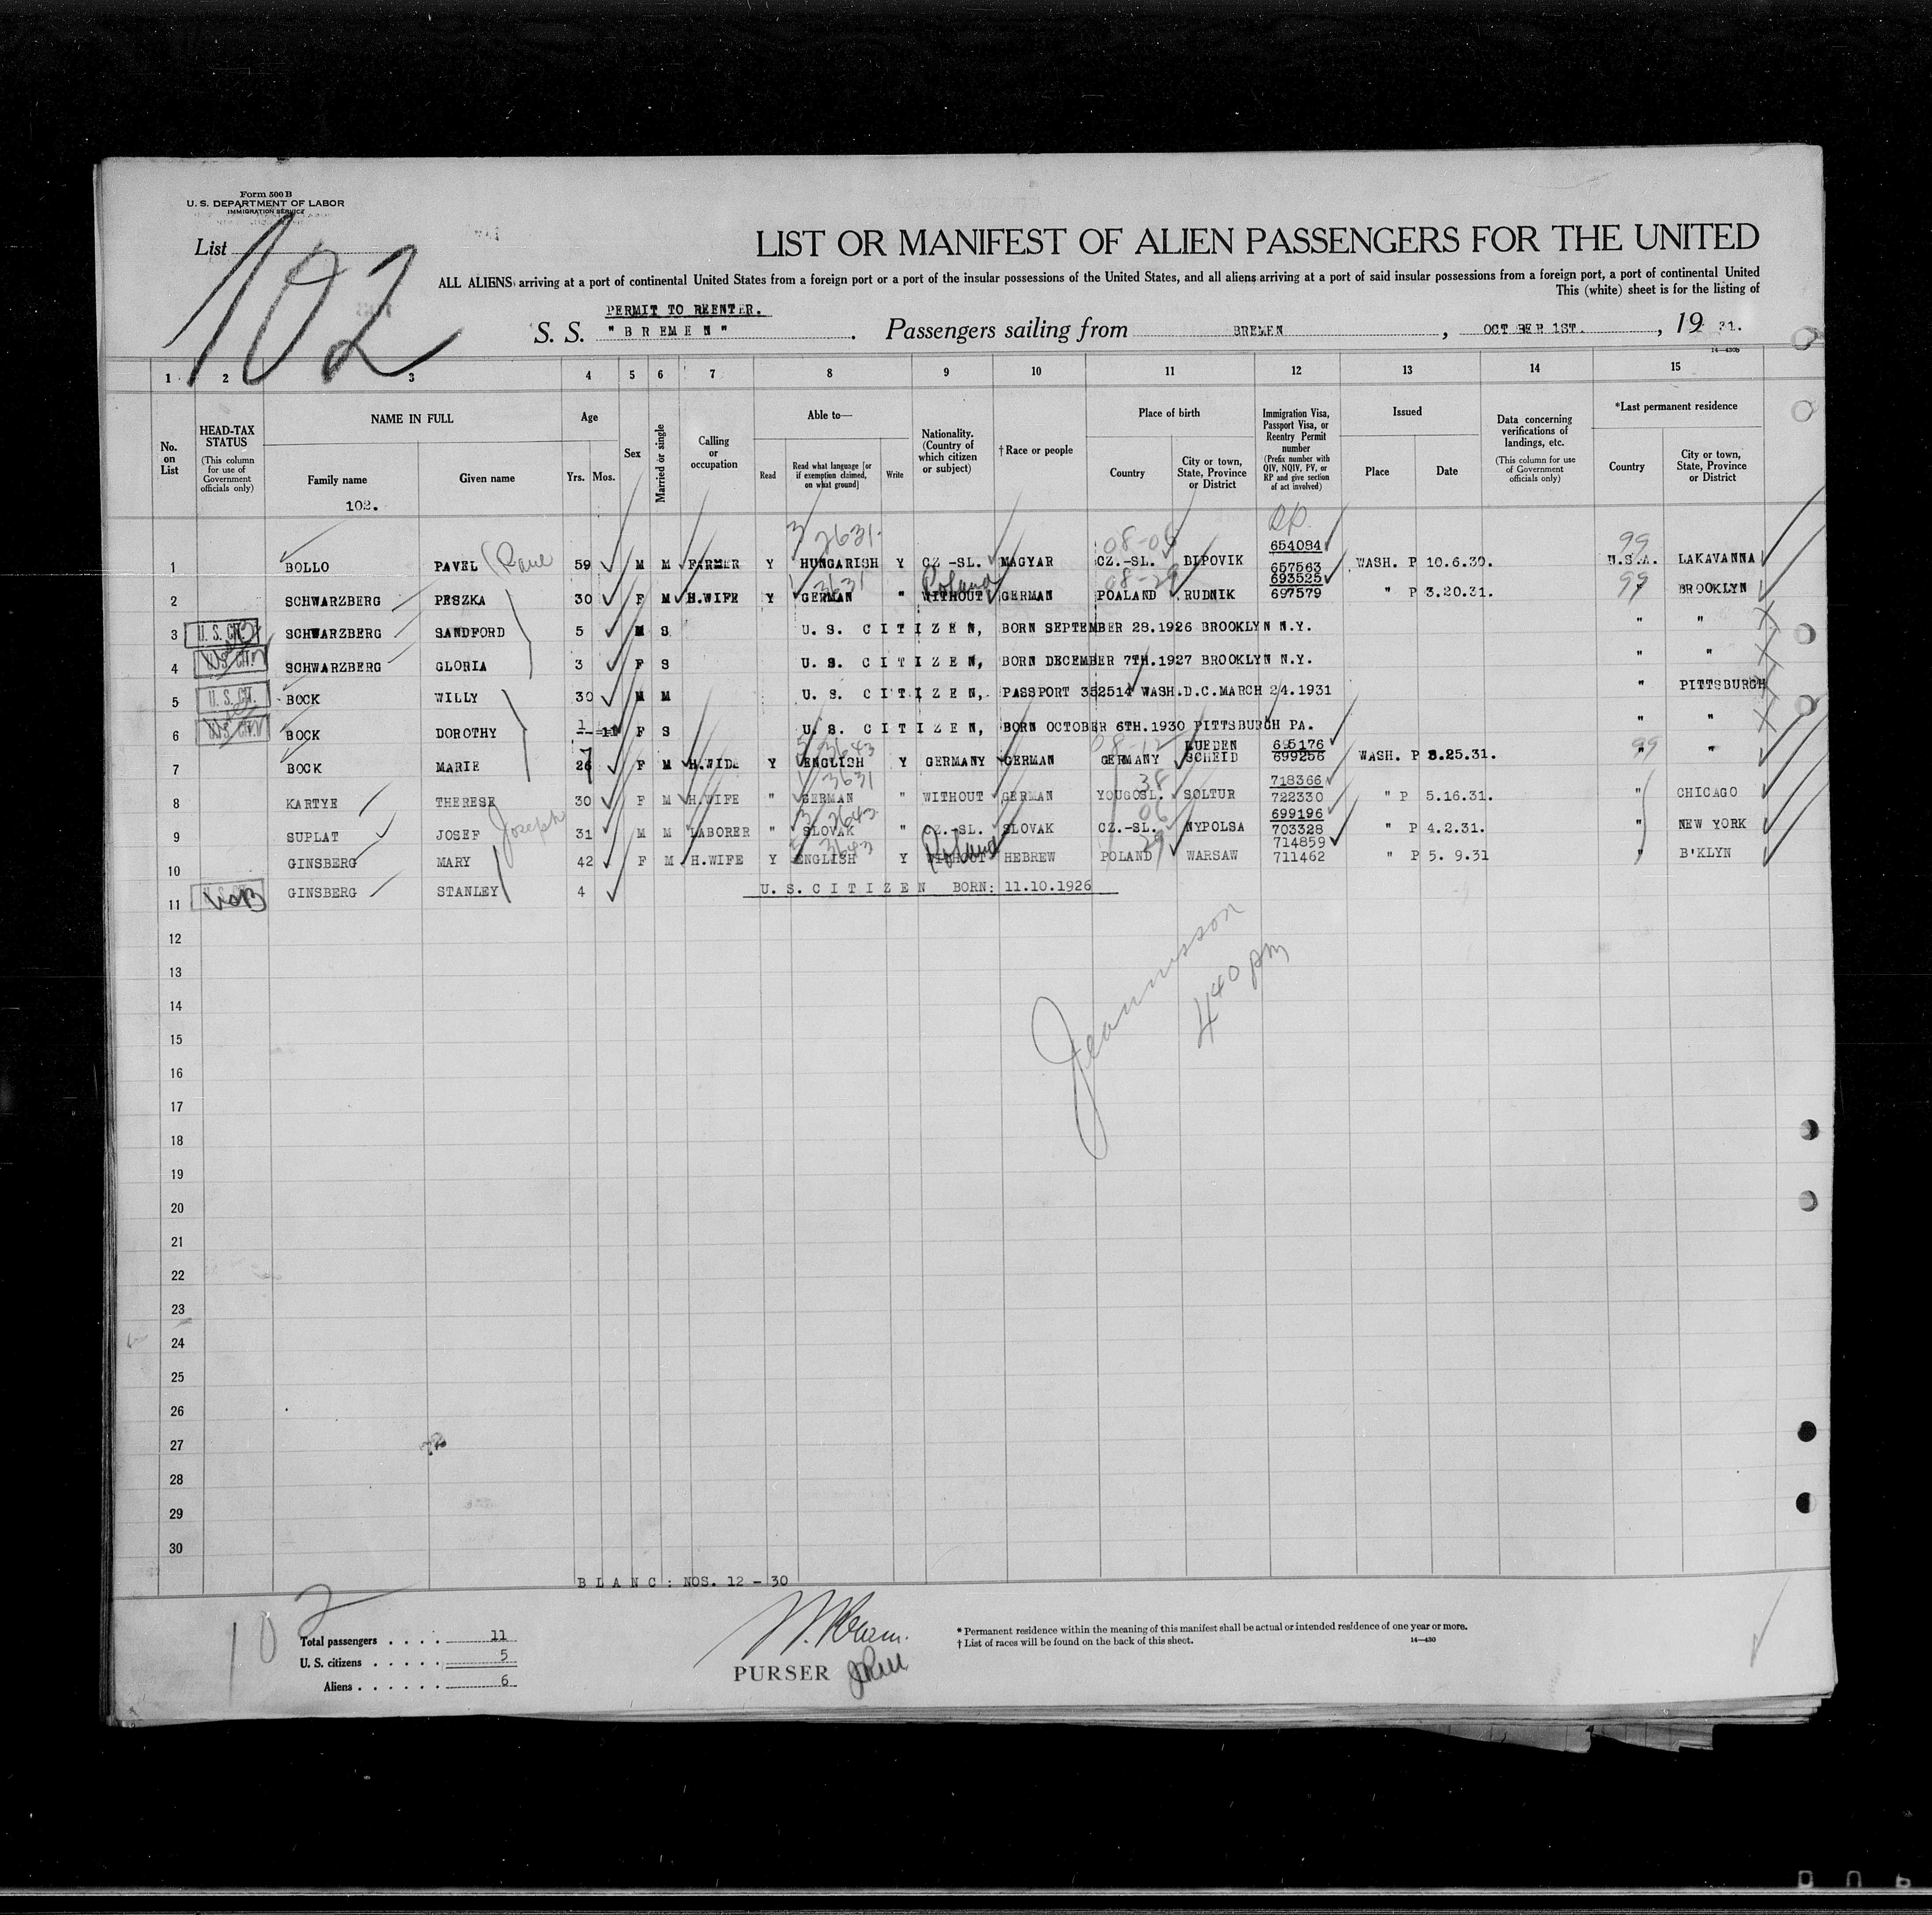 Form 500 B
U. S. DEPARTMENT OF LABOR
IMMIGRATION SERVICE
List 102
LIST OR MANIFEST OF ALIEN PASSENGERS FOR THE UNITED
ALL ALIENS arriving at a port of continental United States from a foreign port or a port of the insular possessions of the United States, and all aliens arriving at a port of said insular possessions from a foreign port, a port of continental United
This (white) sheet is for the listing of
PERMIT TO REENTER.
S. S. "BREMEN". Passengers sailing from BREMEN, OCTOBER 1ST., 19 31.
14—430b
1 2 3 4 5 6 7 8 9 10 11 12 13 14 15
No. on List
HEAD-TAX STATUS (This column for use of Government officials only)
NAME IN FULL
Family name Given name
102.
Age Yrs. Mos.
Sex
Married or single
Calling or occupation
Able to— Read Read what language [or if exemption claimed, on what ground] Write
Nationality. (Country of which citizen or subject)
†Race or people
Place of birth
Country City or town, State, Province or District
Immigration Visa, Passport Visa, or Reentry Permit number (Prefix number with QIV, NQIV, PV, or RP and give section of act involved)
Issued Place Date
Data concerning verifications of landings, etc. (This column for use of Government officials only)
*Last permanent residence
Country City or town, State, Province or District
3 2631. 08-06 99
1 BOLLO PAVEL 59 M M FARMER Y HUNGARISH Y CZ-SL. MAGYAR CZ.-SL. DIPOVIK 654084 657563 WASH. P 10.6.30. U.S.A. LAKAVANNA
3631 Poland 08-29 99
2 SCHWARZBERG PESZKA 30 F M H.WIFE Y GERMAN " WITHOUT GERMAN POALAND RUDNIK 693525 697579 " P 3.20.31. " BROOKLYN
3 U. S. CIT. SCHWARZBERG SANDFORD 5 M S U. S. CITIZEN, BORN SEPTEMBER 28.1926 BROOKLYN N.Y. " "
4 U.S. CIT. SCHWARZBERG GLORIA 3 F S U. S. CITIZEN, BORN DECEMBER 7TH.1927 BROOKLYN N.Y. " "
5 U. S. CIT. BOCK WILLY 30 M M U. S. CITIZEN, PASSPORT 352514 WASH.D.C.MARCH 24.1931 " PITTSBURGH
6 U.S. CIT. BOCK DOROTHY 1 F S U. S. CITIZEN, BORN OCTOBER 6TH.1930 PITTSBURGH PA. " "
3643 08-12 99
7 BOCK MARIE 26 F M H.WIDE Y ENGLISH Y GERMANY GERMAN GERMANY LUEDEN SCHEID 695176 699256 WASH. P 3.25.31. " "
3631 38
8 KARTYE THERESE 30 F M H.WIFE " GERMAN " WITHOUT GERMAN YOUGOSL. SOLTUR 718366 722330 " P 5.16.31. " CHICAGO
Joseph 2643 06
9 SUPLAT JOSEF 31 M M LABORER " SLOVAK " CZ.-SL. SLOVAK CZ.-SL. NYPOLSA 699196 703328 " P 4.2.31. " NEW YORK
3643 Poland 29
10 GINSBERG MARY 42 F M H.WIFE Y ENGLISH Y WITHOUT HEBREW POLAND WARSAW 714859 711462 " P 5. 9.31 " B'KLYN
11 GINSBERG STANLEY 4 U.S.CITIZEN BORN: 11.10.1926
12
13
440 pm
14
15
16
17
18
19
20
21
22
23
24
25
26
27
28
29
30
BLANC: NOS. 12 - 30
102
Total passengers . . . . 11
U. S. citizens . . . . . 5
Aliens . . . . . . 6
PURSER
* Permanent residence within the meaning of this manifest shall be actual or intended residence of one year or more.
† List of races will be found on the back of this sheet.
14—430